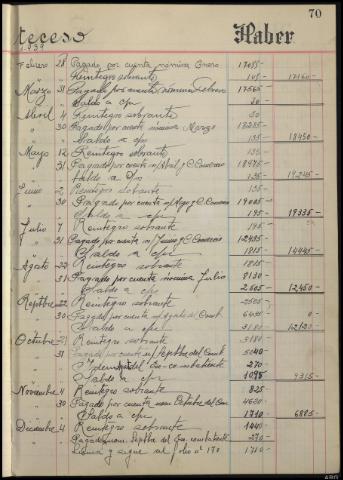 70
teceso Haber
1.939
Febrero 28 Pagado por cuenta nómina Enero 17055-
Reintegro sobrante 105- 17160-
Marzo 31 Pagado por cuenta nomina Febrero 17565-
Saldo a c/n 30-
Abril 4 Reintegro sobrante 30-
30 Pagado por cuenta nomina Marzo 18285-
Saldo a c/n 135- 18450-
Mayo 12 Reintegro sobrante 135-
31 Pagado por cuenta n/ Abril y C. 18975-
Saldo a 135- 19245-
Junio 2 Reintegro sobrante 135-
30 Pagado por cuenta n/ Mayo y C. 19005-
Saldo a c/n 195- 19335-
Julio 7 Reintegro sobrante 195-
31 Pagado por cuenta n/ Junio y C. 12435-
Saldo a c/n 1815- 14445-
Agosto 22 Reintegro sobrante 1815-
31 Pagado por cuenta nómina Julio 8130-
Saldo a c/n 2505- 12450-
Repttbre 22 Reintegro sobrante 2505-
30 Pagado por cuenta n/ Agosto del Comb.
Saldo a c/n 3180-
Octubre 21 Reintegro sobrante 3180-
31 Pagado por cuenta n/ Septbre del Comb. 5040-
Idem del Ex-combatiente 270-
Saldo a c/n 1095- 9315-
Noviembre 4 Reintegro sobrante 825-
30 Pagado por cuenta nom. Octubre del Com. 4620-
Saldo a c/n 1710- 6885-
Diciembre 4 Reintegro sobrante 1440-
Pagado nom. Septbre del Ex combatiente 270-
y sigue al folio nº 170 1710-